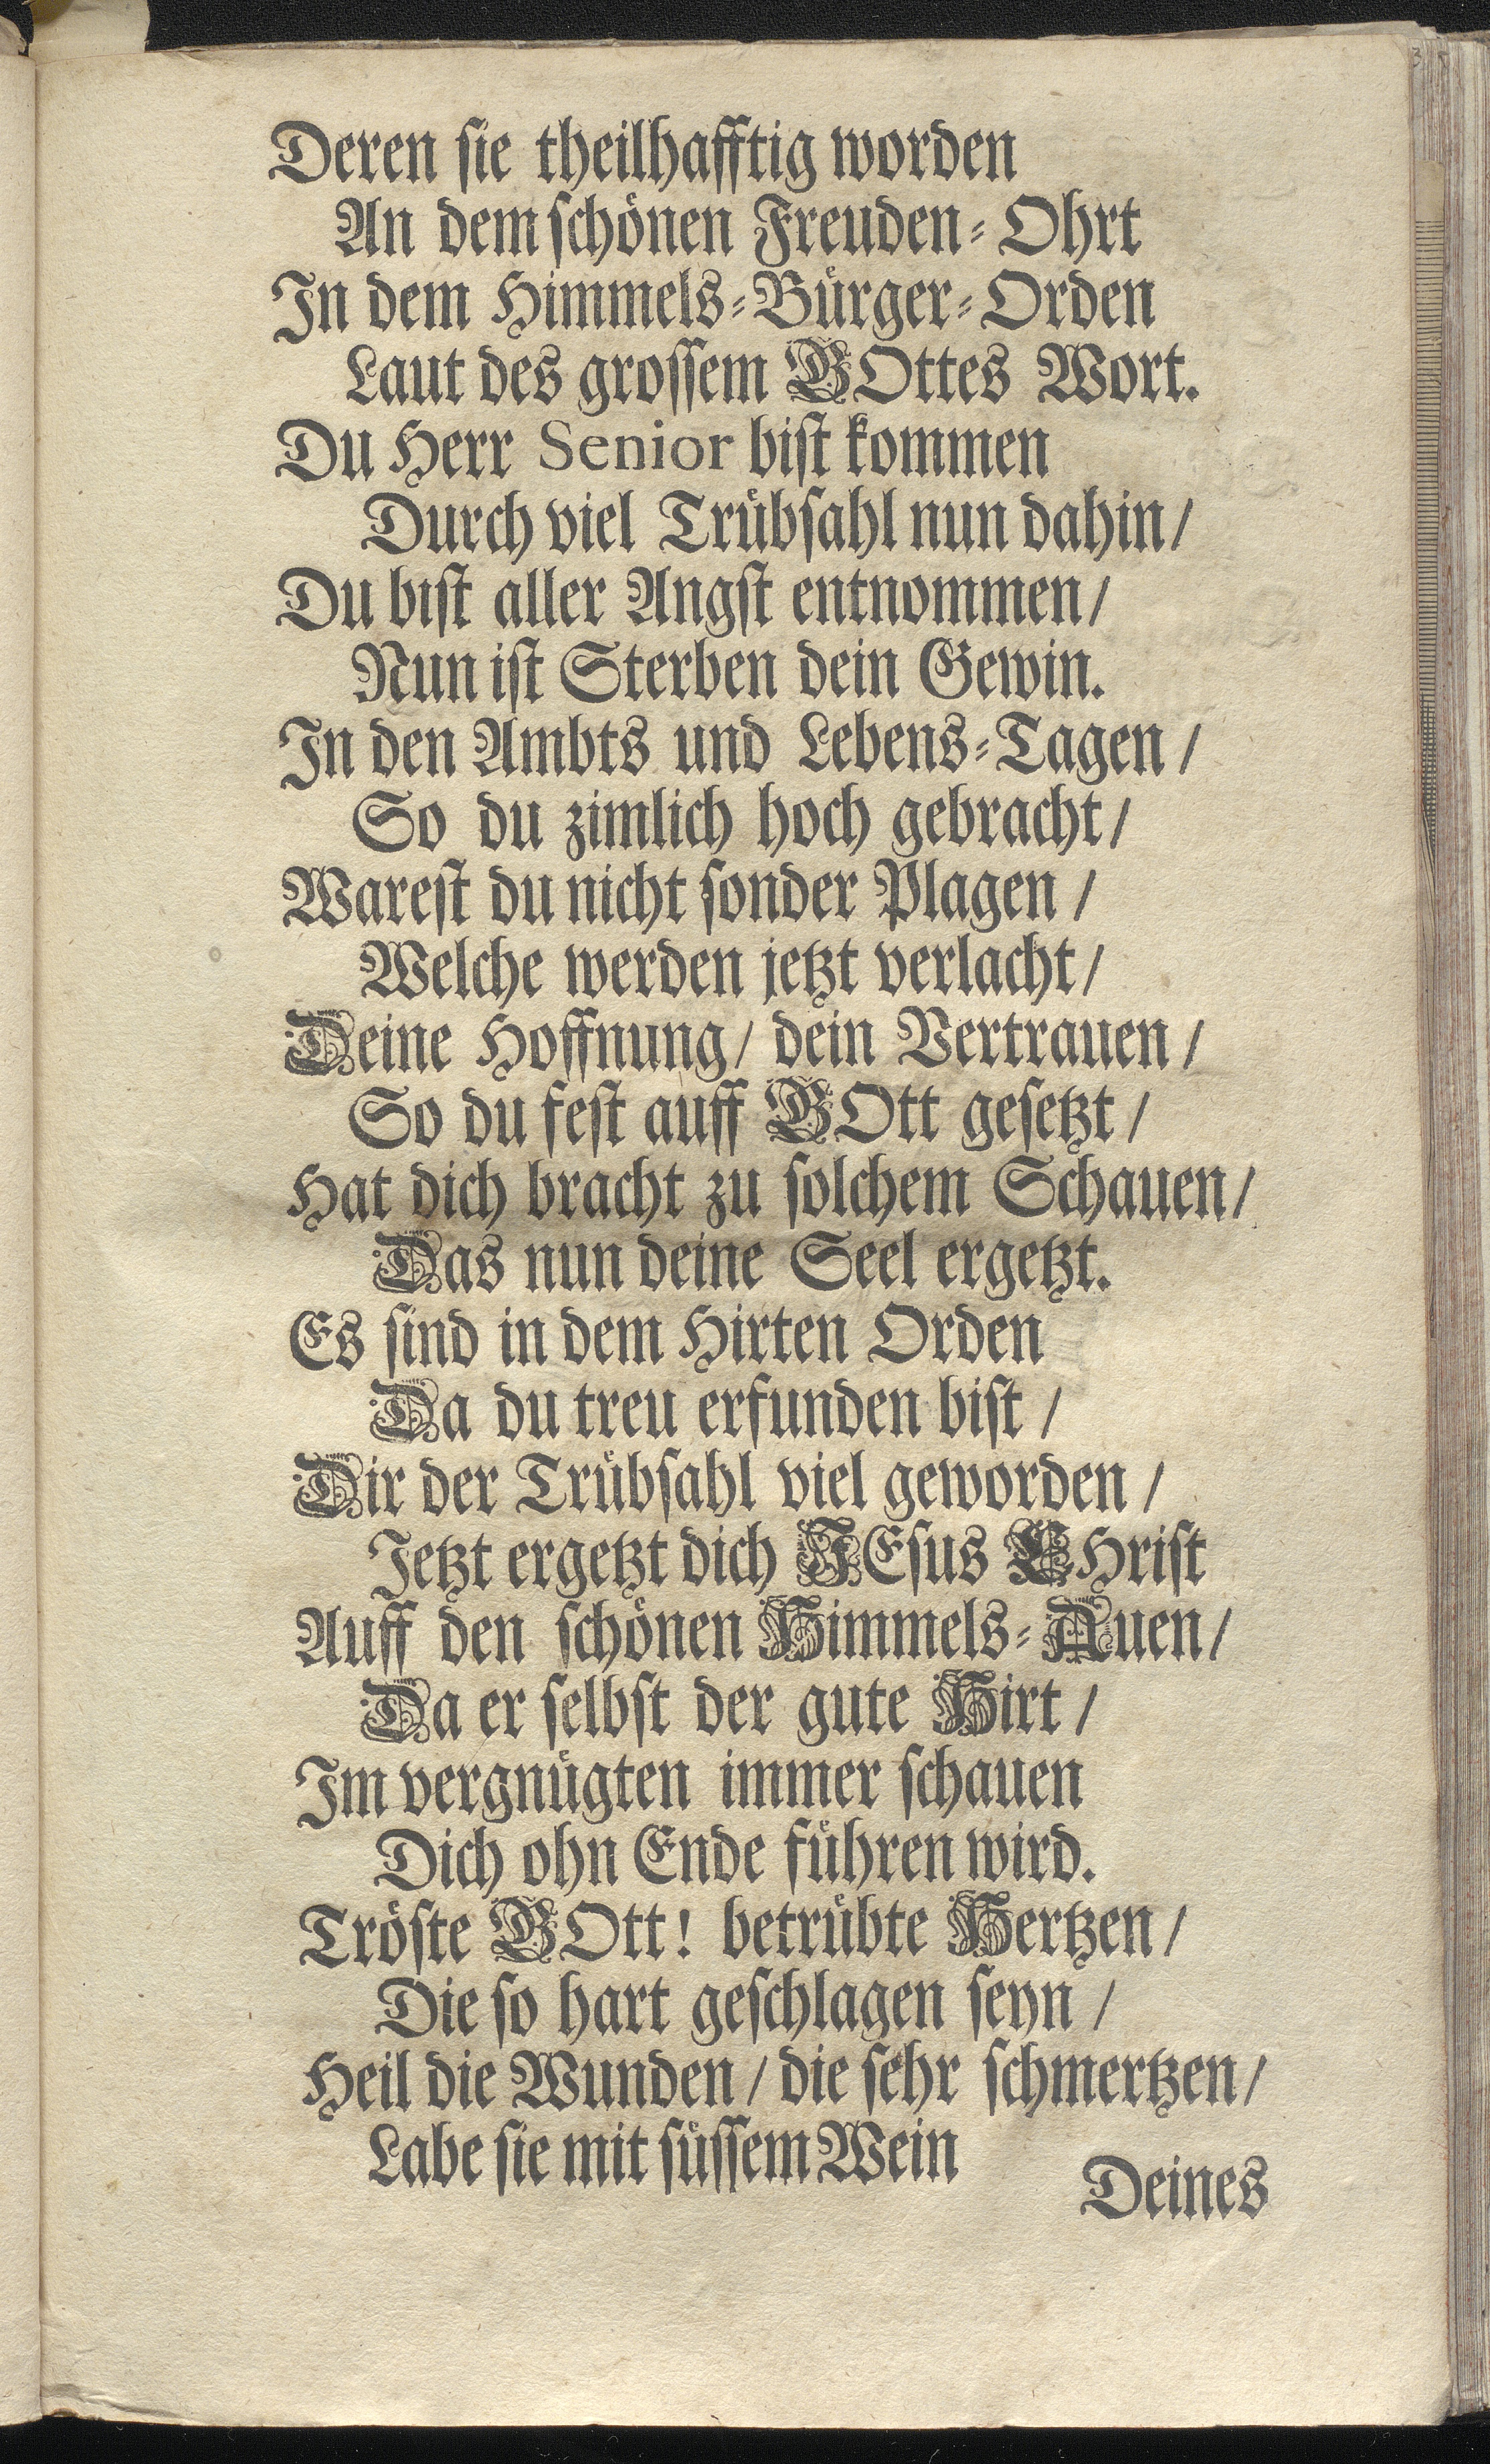 Deren ſie theilhafftig worden
An dem ſchönen Freuden-Ohrt
In dem Himmels-Bürger-Orden
Laut des groſſem GOttes Wort.
Du Herr Senior biſt kommen
Durch viel Trübſahl nun dahin/
Du biſt aller Angſt entnommen/
Nun iſt Sterben dein Gewin.
In den Ambts und Lebens-Tagen/
So du zimlich hoch gebracht/
Wareſt du nicht ſonder Plagen/
Welche werden jetzt verlacht/
Deine Hoffnung/ dein Vertrauen/
So du feſt auff GOtt geſetzt/
Hat dich bracht zu ſolchem Schauen/
Das nun deine Seel ergetzt.
Es ſind in dem Hirten Orden
Da du treu erfunden biſt/
Dir der Trübſahl viel geworden/
Jetzt ergetzt dich JEſus CHriſt
Auff den ſchönen Himmels-Auen/
Da er ſelbſt der gute Hirt/
Im vergnügten immer ſchauen
Dich ohn Ende führen wird.
Tröſte GOtt! betrübte Hertzen/
Die ſo hart geſchlagen ſeyn/
Heil die Wunden/ die ſehr ſchmertzen/
Labe ſie mit ſüſſem Wein
Deines